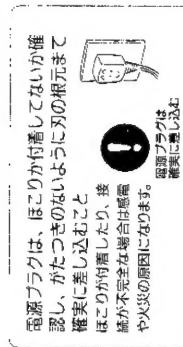 電源プラグは、ほこりが付着してないか確
認し、がたつきのないように刃の根元まで
確実に差し込むこと
ほこりが付着したり、接
続が不完全な場合は感電
や火災の原因になります。
電源プラグは
確実に差し込む